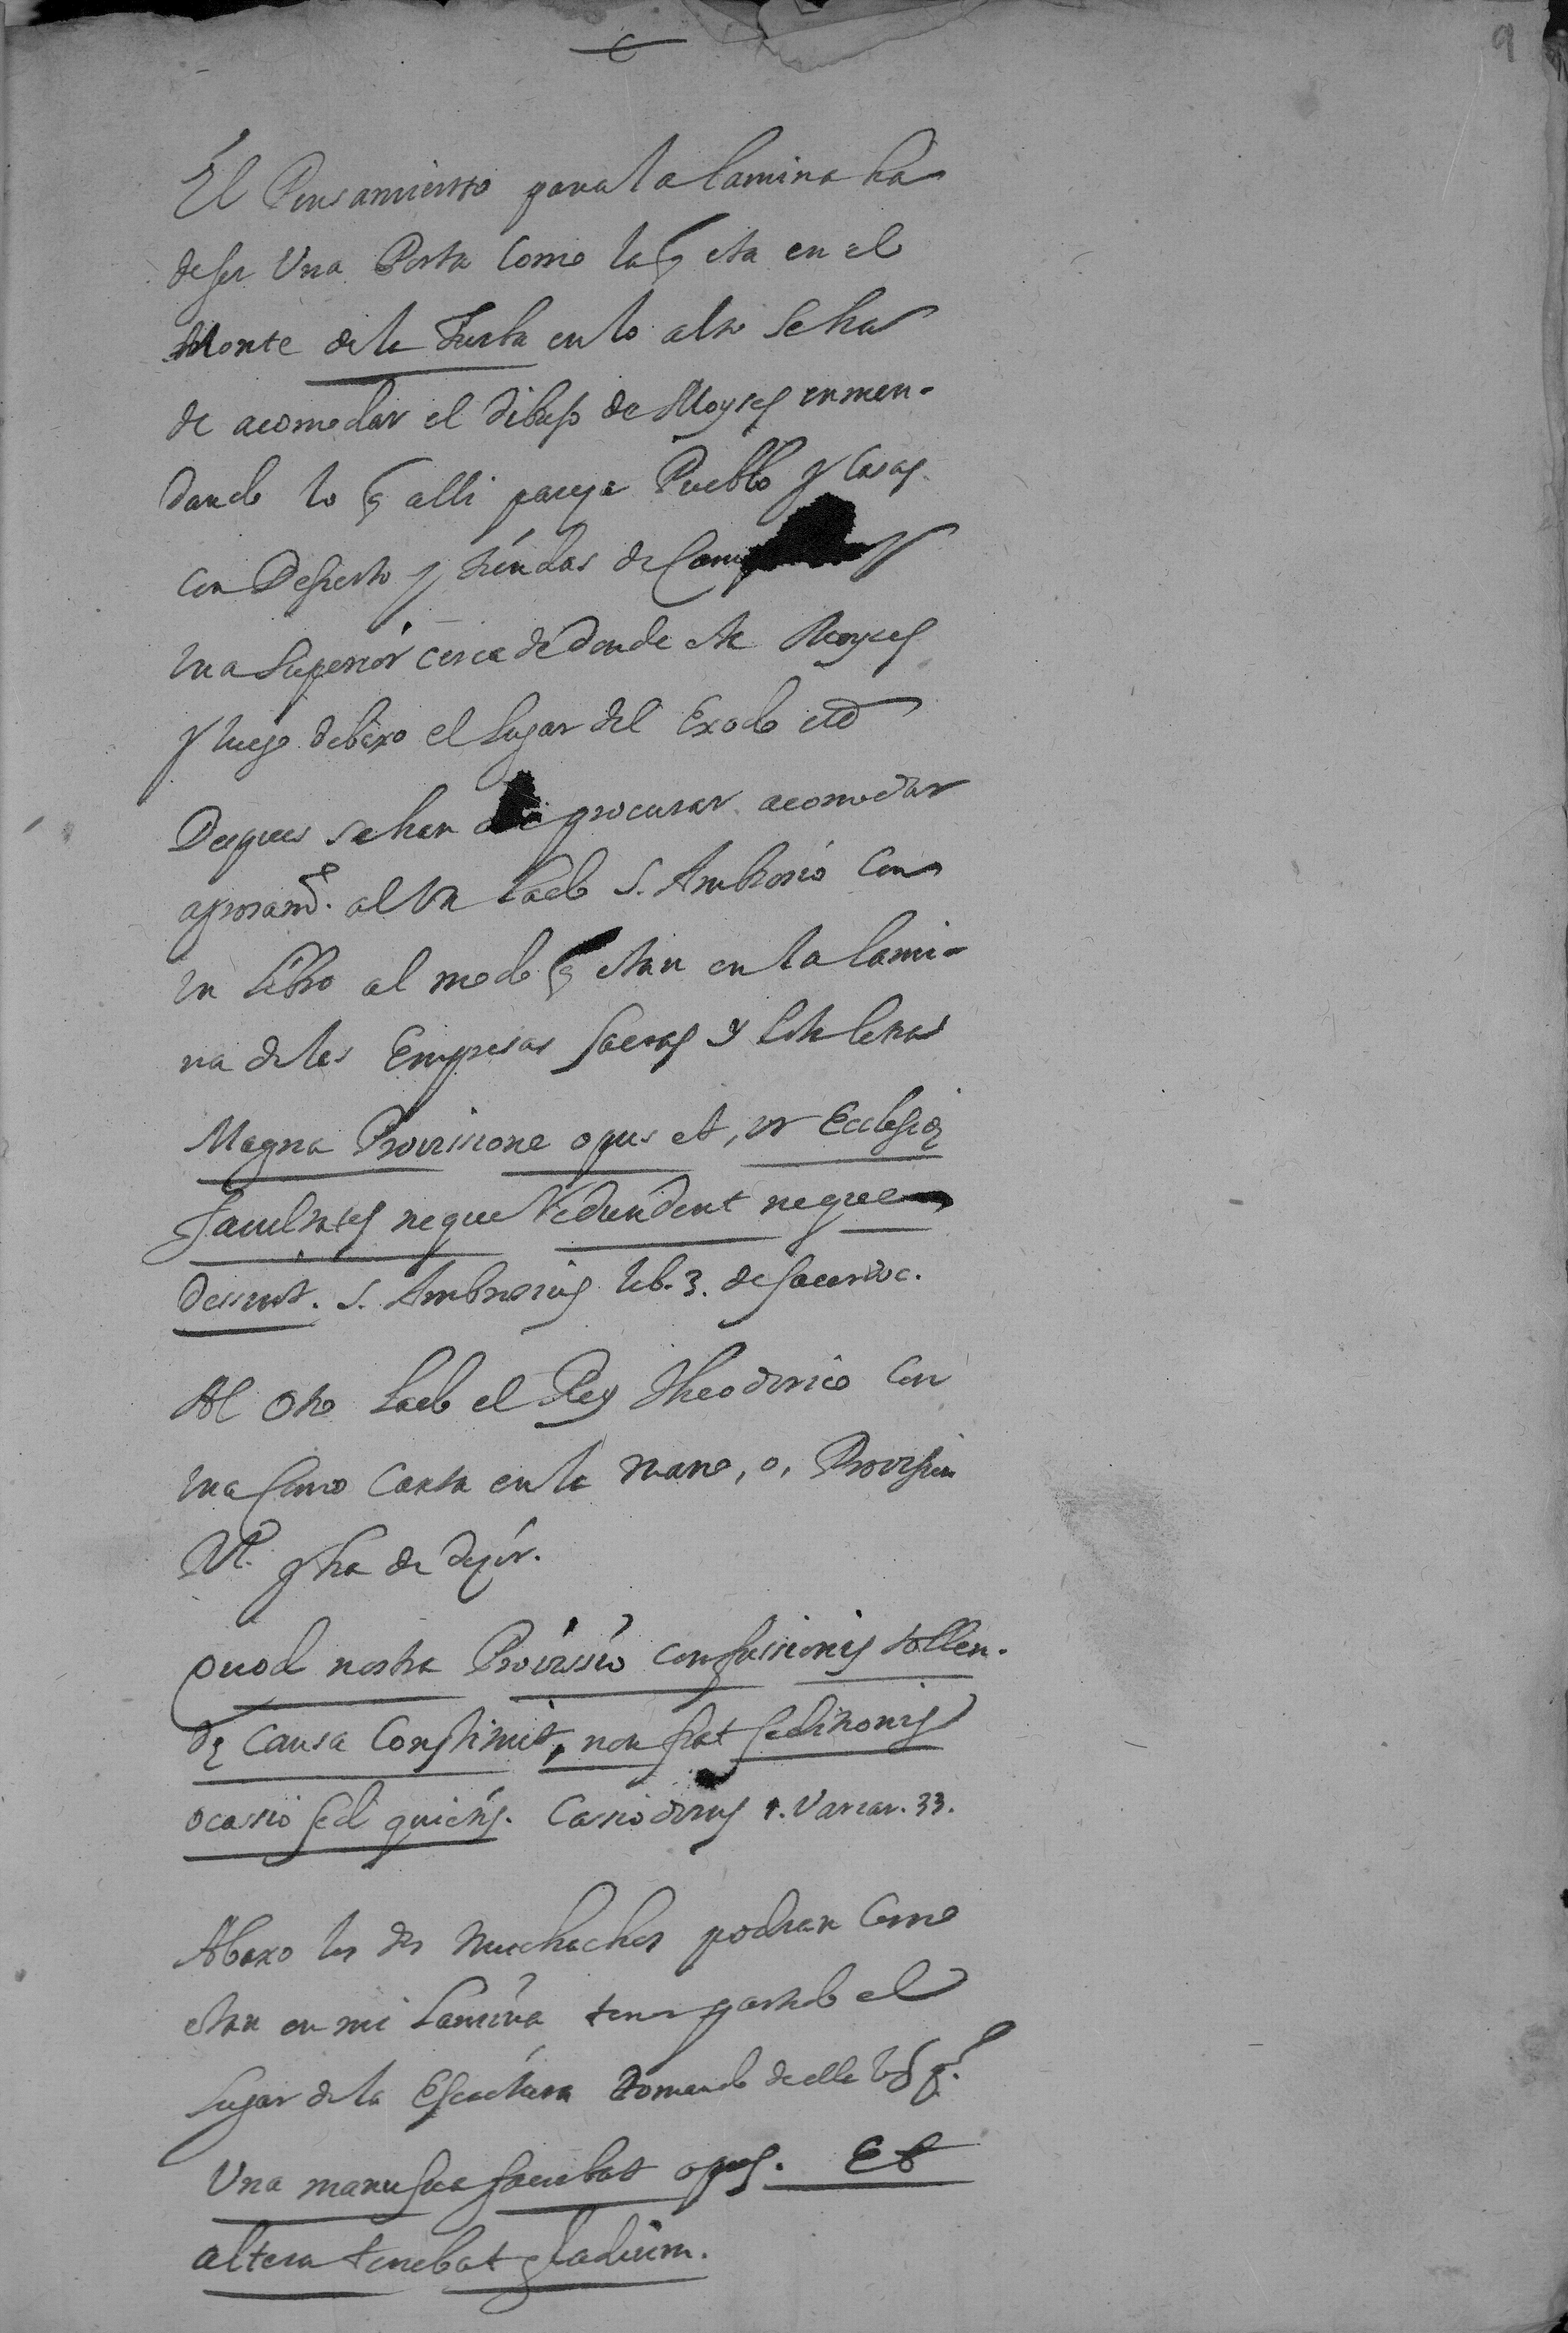 9
El Pensamiento para la lamina ha
de ser Una Porta Como la q esta en el
Monte de la en lo alto Se ha
de acomodar el dibuxo de Moyses enmen-
dando lo q alli pareze Pueblo y Casas
con Desierto y tiendas de y
una Superior cerca de donde esta Moyses
y luego debaxo el Lugar del Exodo
Despues se han de procurar acomodar
al Un Lado S. Ambrosio Con
un Libro al modo q estan en la lami-
na de las Empresas Sacras y esta letra
Magna Provissione opus est, ut Ecclesię
Facultates neque redundent neque
dessint. S. Ambrosius lib. 3. de
Al Otro Lado el Rey Theodorico Con
una Como Carta en la mano, o, Provision
Rl. y ha de dezir.
Quod nostra Provissio confussionis tollen-
dę Causa Constituit, non fiat seditionis
ocassio sed quietis. Cassiodorus 1. Variar. 33.
Abaxo los dos Muchachos podran Como
estan en mi Lamina tener partido el
Lugar de la Escritura tomando de ella
Una manu sua faciebat opus. Et
altera tenebat gladium.